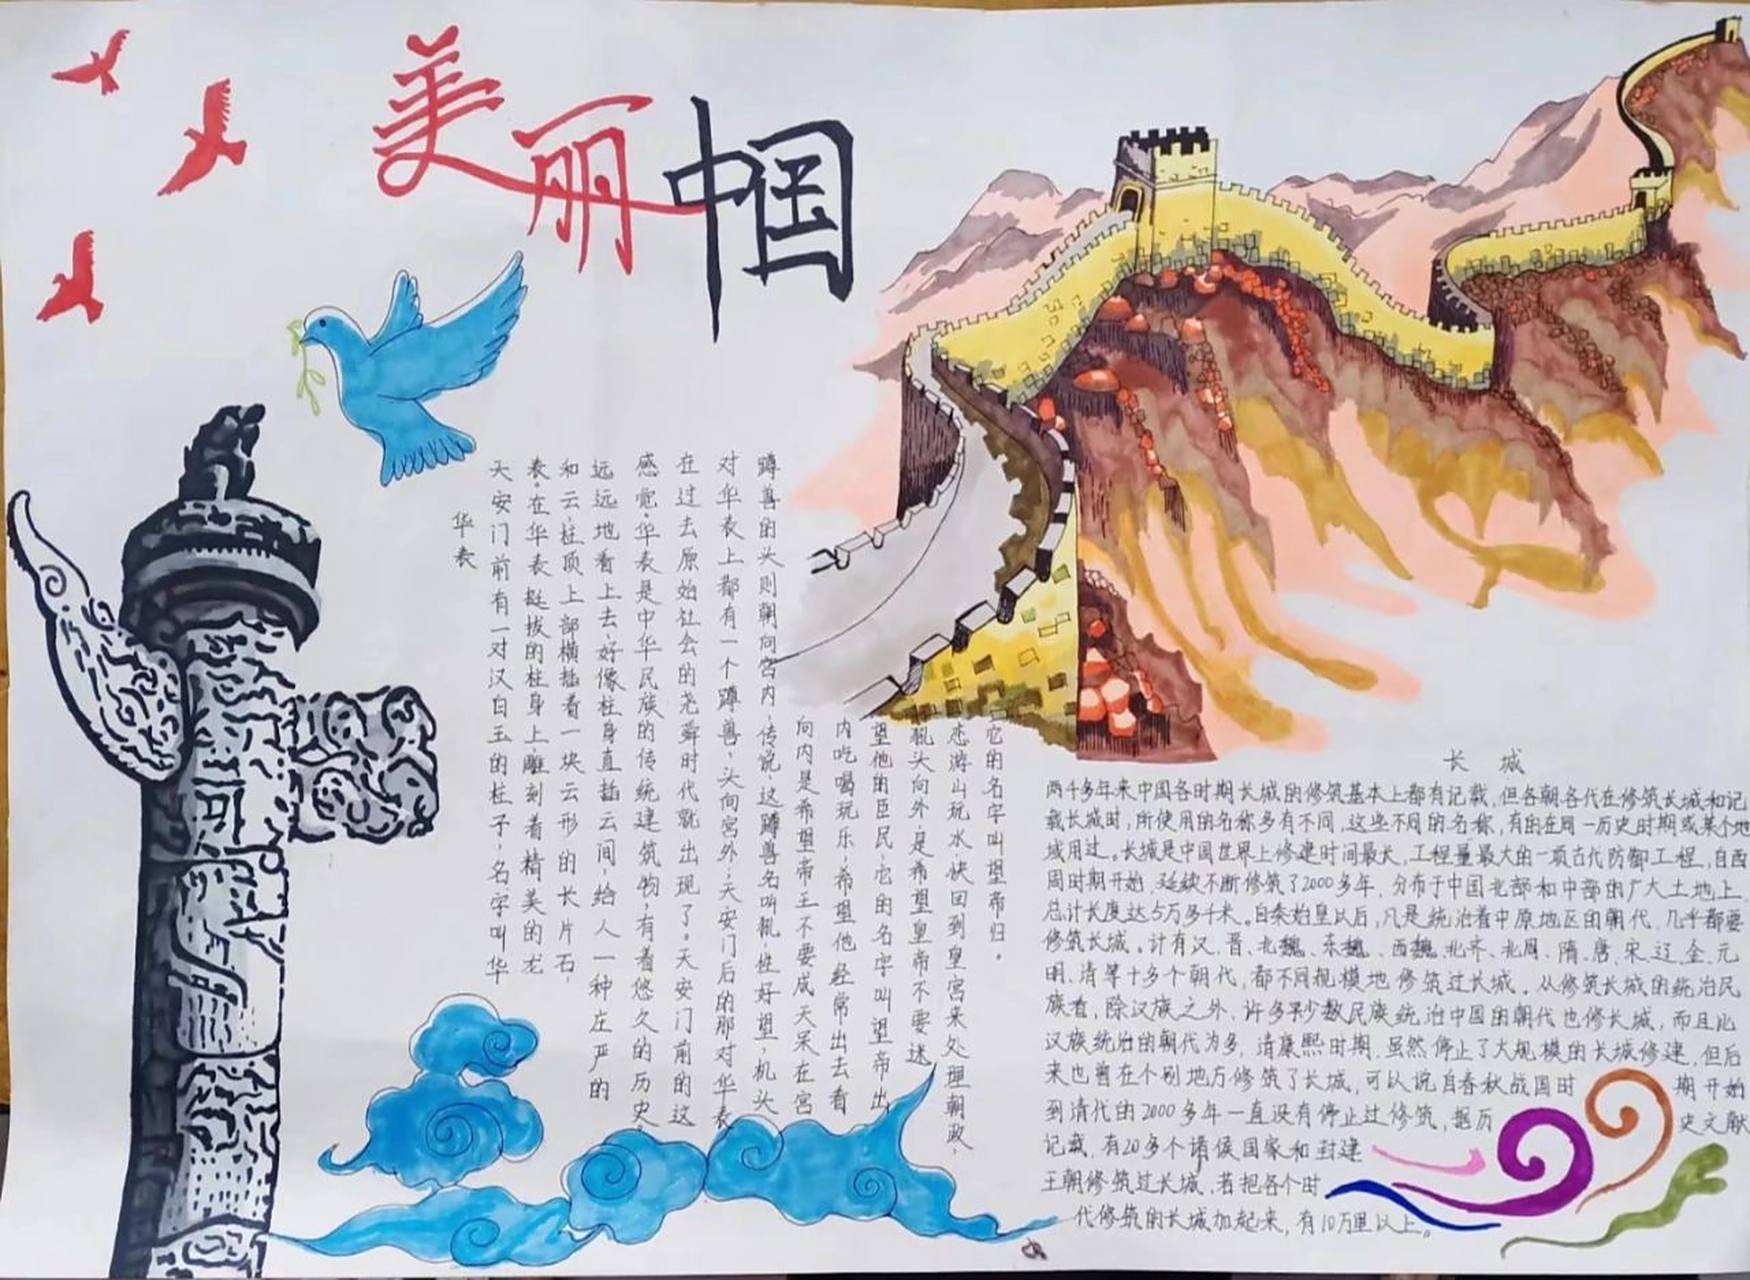 美丽中国
华表
天安门前有一对汉白玉的柱子，名字叫华
表。在华表挺拔的柱身上，雕刻着精美的龙
和云，柱顶上部横插着一块云形的长片石，
远远地看上去，好像柱身直插云间，给人一种庄严的
感觉。华表是中华民族的传统建筑物，有着悠久的历史，
在过去原始社会的尧舜时代就出现了。天安门前的这
对华表上都有一个蹲兽，头向宫外；天安门后的那对华表
蹲兽的头则朝向宫内，传说，这蹲兽名叫犼，性好望，机头
向内是希望帝王不要成天呆在宫
内吃喝玩乐，希望他经常出去看
望他的臣民，它的名字叫望帝出，
犼头向外，是希望皇帝不要迷
恋游山玩水，快回到皇宫来处理朝政，
它的名字叫望帝归。
长城
两千多年来中国各时期长城的修筑基本上都有记载，但各朝各代在修筑长城和记
载长城时，所使用的名称多有不同，这些不同的名称，有的在同一历史时期或某个地
域用过。长城是中国世界上修建时间最长，工程量最大的一项古代防御工程，自西
周时期开始，延续不断修筑了2000多年，分布于中国北部和中部的广大土地上，
总计长度达5万多千米。自秦始皇以后，凡是统治着中原地区的朝代，几乎都要
修筑长城。计有汉、晋、北魏、东魏、西魏、北齐、北周、隋、唐、宋、辽、金、元、
明、清等十多个朝代，都不同规模地修筑过长城。从修筑长城的统治民
族看，除汉族之外，许多少数民族统治中国的朝代也修长城，而且比
汉族统治的朝代为多，清康熙时期，虽然停止了大规模的长城修建，但后
来也曾在个别地方修筑了长城，可以说自春秋战国时期开始
到清代的2000多年一直没有停止过修筑，据历史文献
记载，有20多个诸侯国家和封建
王朝修筑过长城，若把各个时
代修筑的长城加起来，有10万里以上。